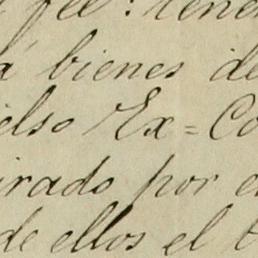 fee: tene
á bienes de
elso Ex=Co
irado por e
de ellos el t